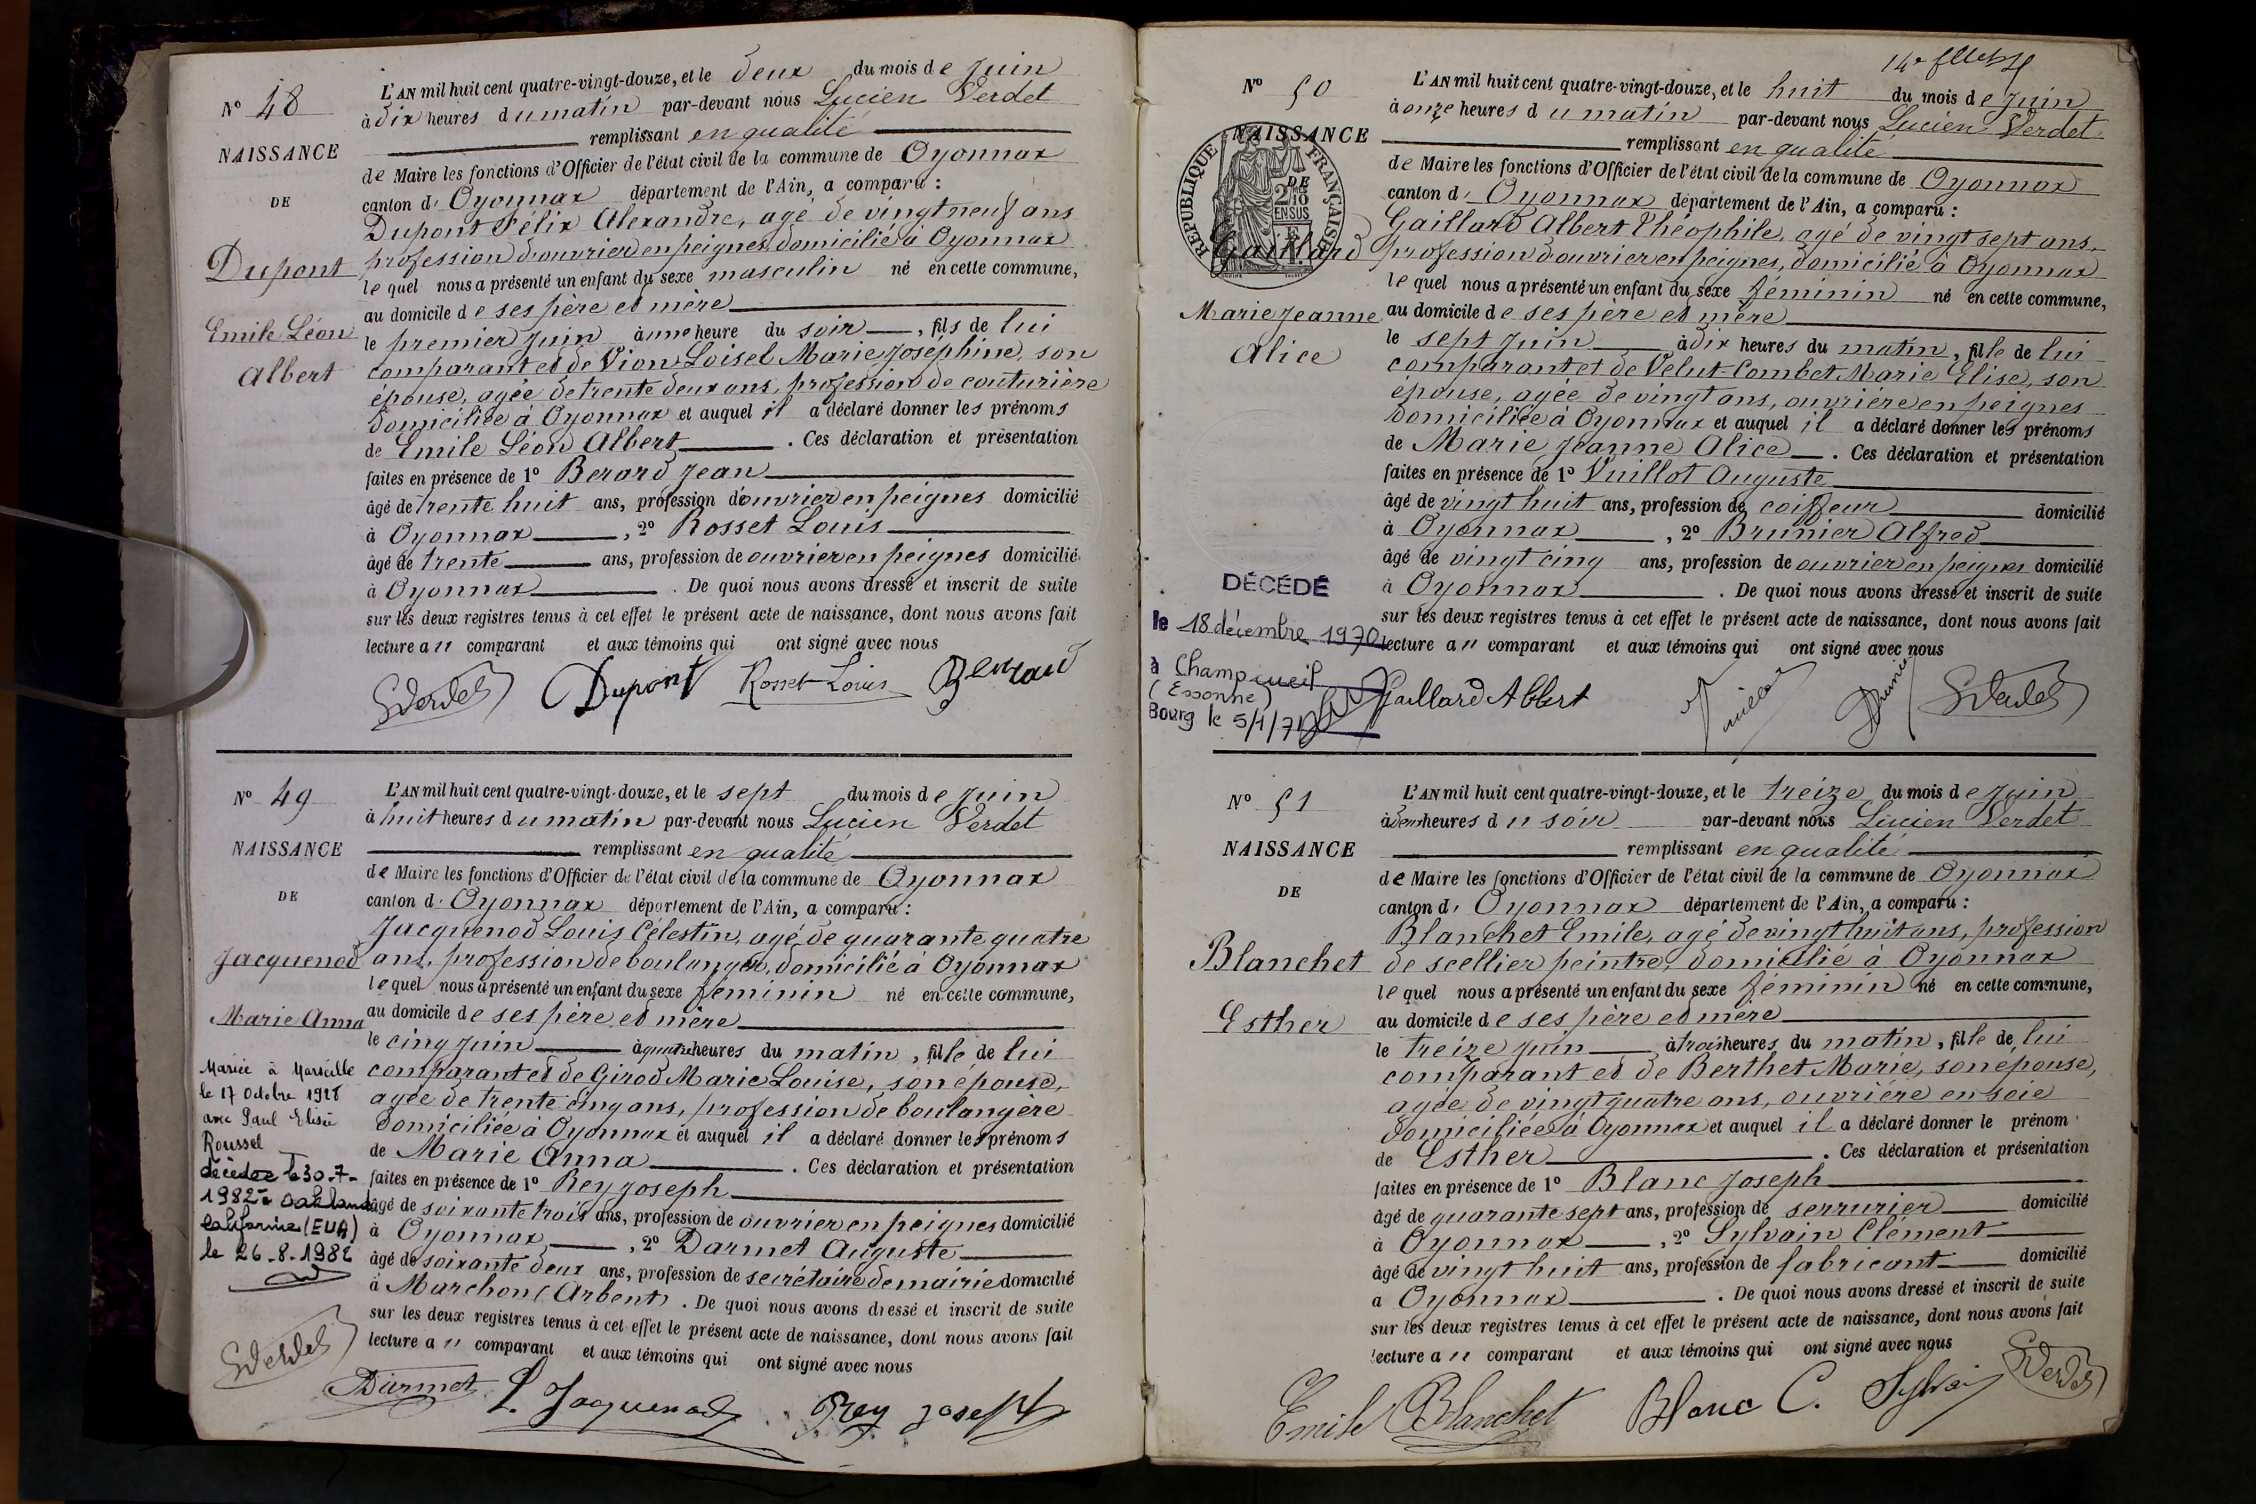 N° 48
NAISSANCE
DE
Dupont
Emile Léon
Albert
L'AN mil huit cent quatre-vingt-douze, et le deux du mois de Juin
à dix heures du matin par-devant nous Lucien Verdet
remplissant en qualité
de Maire les fonctions d'Officier de l'état civil de la commune de Oyonnax
canton d' Oyonnax département de l'Ain, a comparu :
Dupont Félix Alexandre, agé de vingt neuf ans
profession d'ouvrier en peignes, domicilié à Oyonnax
lequel nous a présenté un enfant du sexe masculin né en cette commune,
au domicile de ses père et mère
le premier Juin à une heure du soir, fils de lui
comparant et de Vion Loisel Marie Joséphine, son
épouse, agée de trente deux ans, profession de couturière
domiciliée à Oyonnax et auquel il a déclaré donner les prénoms
de Emile Léon Albert. Ces déclaration et présentation
faites en présence de 1° Berard Jean
âgé de trente huit ans, profession d'ouvrier en peignes domicilié
à Oyonnax, 2° Rosset Louis
âgé de trente ans, profession de ouvrier en peignes domicilié
à Oyonnax. De quoi nous avons dressé et inscrit de suite
sur les deux registres tenus à cet effet le présent acte de naissance, dont nous avons fait
lecture au comparant et aux témoins qui ont signé avec nous
Verdet Dupont Rosset Louis Berrard
N° 49
NAISSANCE
DE
Jacquenod
Marie Anna
Mariée à Marseille
le 17 Octobre 1928
avec Paul Elisée
Roussel
décédée le 30-7-
1982 à Oakland
californie (EUA)
le 26-8-1982
L'AN mil huit cent quatre-vingt-douze, et le sept du mois de Juin
à huit heures du matin par-devant nous Lucien Verdet
remplissant en qualité
de Maire les fonctions d'Officier de l'état civil de la commune de Oyonnax
canton d' Oyonnax département de l'Ain, a comparu :
Jacquenod Louis Célestin, agé de quarante quatre
ans, profession de boulanger, domicilié à Oyonnax
lequel nous a présenté un enfant du sexe féminin né en cette commune,
au domicile de ses père et mère
le cinq Juin à quatre heures du matin, fille de lui
comparant et de Girod Marie Louise, son épouse,
agée de trente cinq ans, profession de boulangère
domiciliée à Oyonnax et auquel il a déclaré donner les prénoms
de Marie Anna. Ces déclaration et présentation
faites en présence de 1° Rey Joseph
âgé de soixante trois ans, profession de ouvrier en peignes domicilié
à Oyonnax, 2° Darmet Auguste
âgé de soixante deux ans, profession de secrétaire de mairie domicilié
à Marchon (Arbent). De quoi nous avons dressé et inscrit de suite
sur les deux registres tenus à cet effet le présent acte de naissance, dont nous avons fait
lecture au comparant et aux témoins qui ont signé avec nous
Verdet
Darmet L. Jacquenod Rey Joseph
14e
N° 50
NAISSANCE
DE
RÉPUBLIQUE FRANÇAISE
2/10 EN SUS
Gaillard
Marie Jeanne
Alice
DÉCÉDÉ
le 18 décembre 1970
à Champcueil
(Essonne)
Bourg le 5/1/71
L'AN mil huit cent quatre-vingt-douze, et le huit du mois de Juin
à onze heures du matin par-devant nous Lucien Verdet
remplissant en qualité
de Maire les fonctions d'Officier de l'état civil de la commune de Oyonnax
canton d' Oyonnax département de l'Ain, a comparu :
Gaillard Albert Théophile, agé de vingt sept ans,
profession d'ouvrier en peignes, domicilié à Oyonnax
lequel nous a présenté un enfant du sexe féminin né en cette commune,
au domicile de ses père et mère
le sept Juin à dix heures du matin, fille de lui
comparant et de Velut-Combet Marie Elise, son
épouse, agée de vingt ans, ouvrière en peignes
domiciliée à Oyonnax et auquel il a déclaré donner les prénoms
de Marie Jeanne Alice. Ces déclaration et présentation
faites en présence de 1° Vuillot Auguste
âgé de vingt huit ans, profession de coiffeur domicilié
à Oyonnax, 2° Brunier Alfred
âgé de vingt cinq ans, profession de ouvrier en peignes domicilié
à Oyonnax. De quoi nous avons dressé et inscrit de suite
sur les deux registres tenus à cet effet le présent acte de naissance, dont nous avons fait
lecture au comparant et aux témoins qui ont signé avec nous
Gaillard Albert Vuillot Brunier Verdet
N° 51
NAISSANCE
DE
Blanchet
Esther
L'AN mil huit cent quatre-vingt-douze, et le treize du mois de Juin
à deux heures du soir par-devant nous Lucien Verdet
remplissant en qualité
de Maire les fonctions d'Officier de l'état civil de la commune de Oyonnax
canton d' Oyonnax département de l'Ain, a comparu :
Blanchet Emile, agé de vingt huit ans, profession
de scellier peintre, domicilié à Oyonnax
lequel nous a présenté un enfant du sexe féminin né en cette commune,
au domicile de ses père et mère
le treize Juin à trois heures du matin, fille de lui
comparant et de Berthet Marie, son épouse,
agée de vingt quatre ans, ouvrière en soie
domiciliée à Oyonnax et auquel il a déclaré donner le prénom
de Esther. Ces déclaration et présentation
faites en présence de 1° Blanc Joseph
âgé de quarante sept ans, profession de serrurier domicilié
à Oyonnax, 2° Sylvain Clément
âgé de vingt huit ans, profession de fabricant domicilié
a Oyonnax. De quoi nous avons dressé et inscrit de suite
sur les deux registres tenus à cet effet le présent acte de naissance, dont nous avons fait
lecture au comparant et aux témoins qui ont signé avec nous
Emile Blanchet Blanc C. Sylvain Verdet